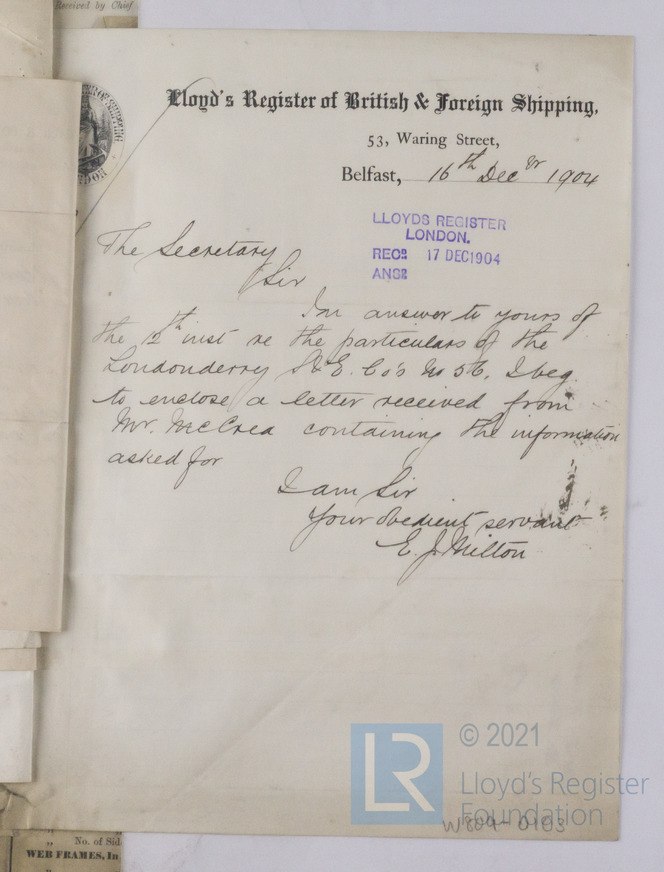 Received by Chief
Lloyd's Register of British & Foreign Shipping,
53, Waring Street,
Belfast, 16th Decr 1904
LLOYDS REGISTER
LONDON.
RECD 17 DEC 1904
ANSD
The Secretary
Sir
In answer to yours of
the inst re the particulars of the
Londonderry S & E. Co's No 56, I beg
to enclose a letter received from
Mr. McCrea containing the information
asked for
I am Sir
Your obedient servant
E. J. Milton
LR
© 2021
Lloyd's Register
Foundation
W809-0103
" No. of Sid
WEB FRAMES, In
"